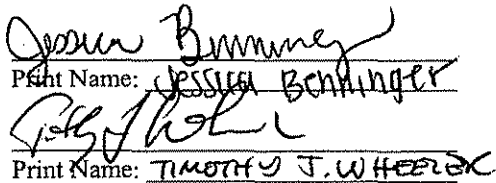 Jessica Benninger
Print Name: Jessica Benninger
Print Name: TIMOTHY J. WHEELER